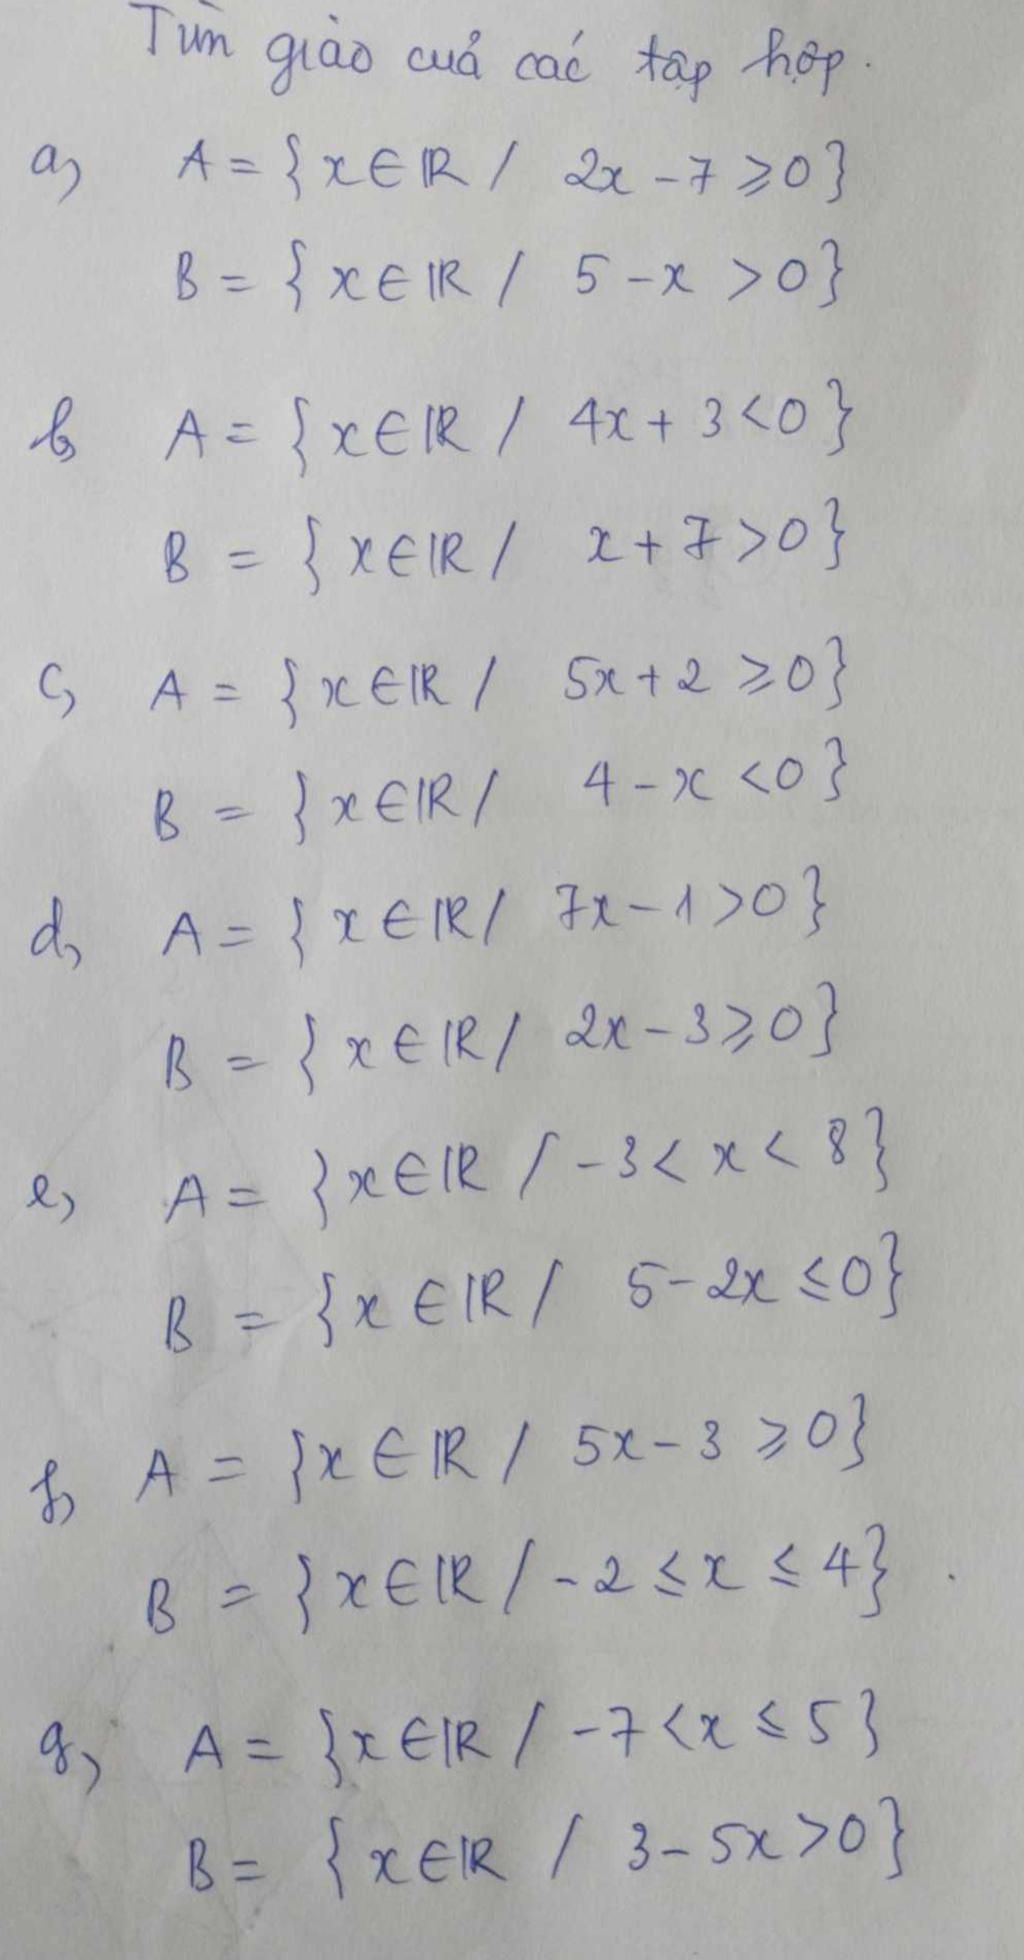 Tìm giao cuả các tập hợp.
a, A = {x∈ℝ / 2x - 7 ⩾ 0}
B = {x∈ℝ / 5 - x > 0}
b, A = {x∈ℝ / 4x + 3 < 0}
B = {x∈ℝ / x + 7 > 0}
c, A = {x∈ℝ / 5x + 2 ⩾ 0}
B = {x∈ℝ / 4 - x < 0}
d, A = {x∈ℝ / 7x - 1 > 0}
B = {x∈ℝ / 2x - 3 ⩾ 0}
e, A = {x∈ℝ / -3 < x < 8}
B = {x∈ℝ / 5 - 2x ≤ 0}
f, A = {x∈ℝ / 5x - 3 ⩾ 0}
B = {x∈ℝ / -2 ≤ x ≤ 4}.
g, A = {x∈ℝ / -7 < x ≤ 5}
B = {x∈ℝ / 3 - 5x > 0}